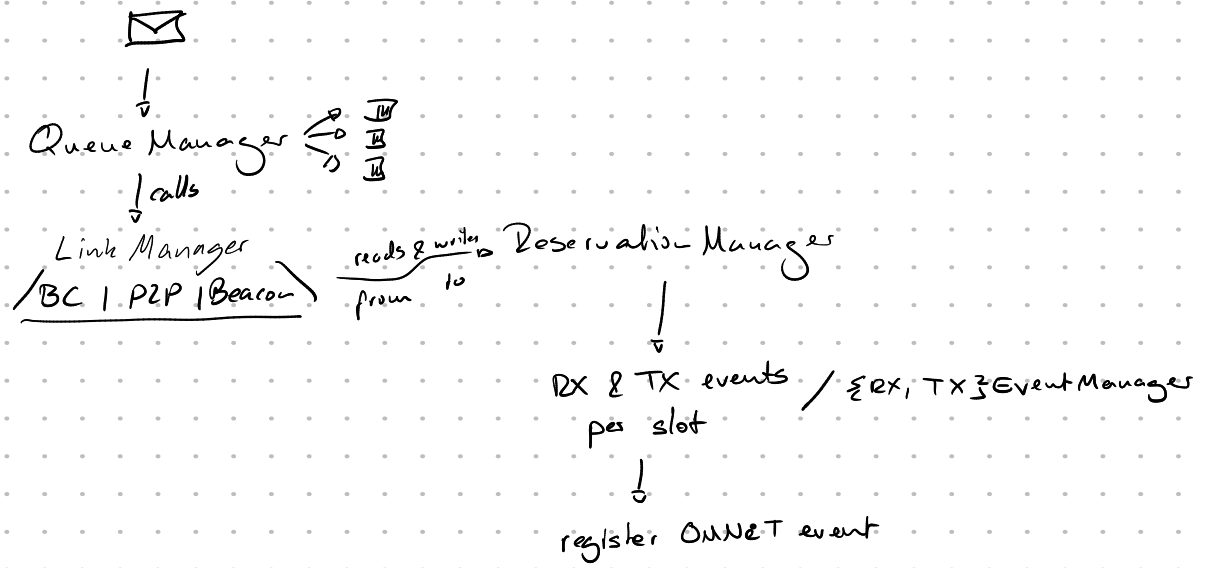 Queue Manager
calls
Link Manager
BC | P2P | Beacon
reads & writes
from to
Reservation Manager
RX & TX events / {RX, TX}EventManager
per slot
register OMNeT event